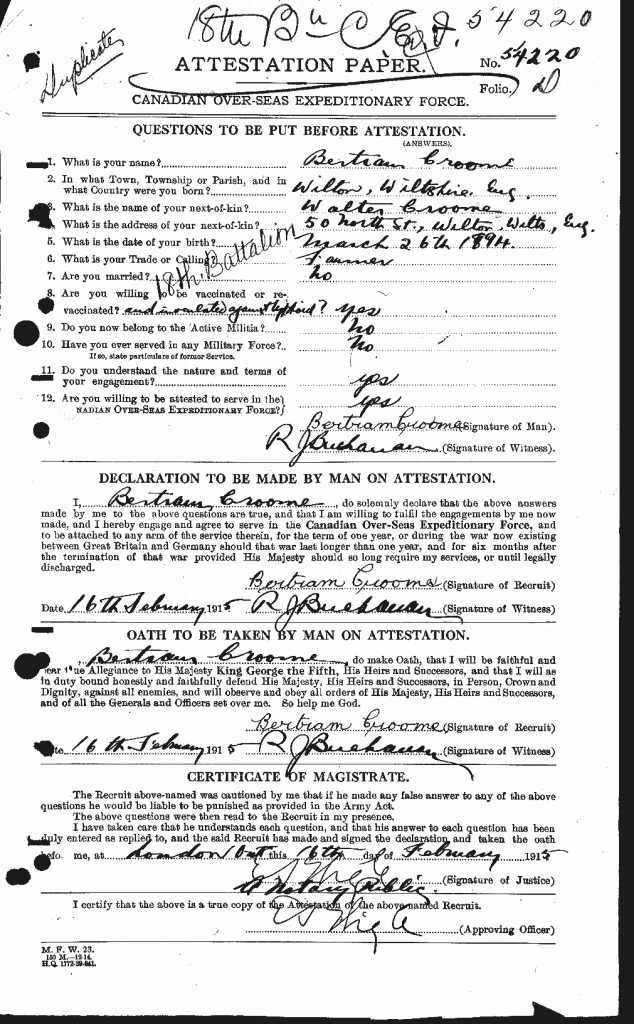 18th Bn C.E.F. 54220
Duplicate
ATTESTATION PAPER. No. 54220
Folio. D
CANADIAN OVER-SEAS EXPEDITIONARY FORCE.
QUESTIONS TO BE PUT BEFORE ATTESTATION.
(ANSWERS).
1. What is your name? Bertram Croome
2. In what Town, Township or Parish, and in
what Country were you born? Wilton, Wiltshire, Eng.
3. What is the name of your next-of-kin? Walter Croome
4. What is the address of your next-of-kin? 50 North St., Wilton, Wilts, Eng.
5. What is the date of your birth? March 26th 1894.
6. What is your Trade or Calling? Farmer
18th Battalion
7. Are you married? no
8. Are you willing to be vaccinated or re-
vaccinated? and inoculated against typhoid? yes
9. Do you now belong to the Active Militia? no
10. Have you ever served in any Military Force? no.
If so, state particulars of former Service.
11. Do you understand the nature and terms of
your engagement? yes
12. Are you willing to be attested to serve in the
NADIAN OVER-SEAS EXPEDITIONARY FORCE? yes
Bertram Croome (Signature of Man).
R J Buchanan (Signature of Witness).
DECLARATION TO BE MADE BY MAN ON ATTESTATION.
I, Bertram Croome, do solemnly declare that the above answers
made by me to the above questions are true, and that I am willing to fulfil the engagements by me now
made, and I hereby engage and agree to serve in the Canadian Over-Seas Expeditionary Force, and
to be attached to any arm of the service therein, for the term of one year, or during the war now existing
between Great Britain and Germany should that war last longer than one year, and for six months after
the termination of that war provided His Majesty should so long require my services, or until legally
discharged.
Bertram Croome (Signature of Recruit)
Date 16th February 1915 R J Buchanan (Signature of Witness)
OATH TO BE TAKEN BY MAN ON ATTESTATION.
, Bertram Croome, do make Oath, that I will be faithful and
bear true Allegiance to His Majesty King George the Fifth, His Heirs and Successors, and that I will as
in duty bound honestly and faithfully defend His Majesty, His Heirs and Successors, in Person, Crown and
Dignity, against all enemies, and will observe and obey all orders of His Majesty, His Heirs and Successors,
and of all the Generals and Officers set over me. So help me God.
Bertram Croome (Signature of Recruit)
Date 16th February 1915 R J Buchanan (Signature of Witness)
CERTIFICATE OF MAGISTRATE.
The Recruit above-named was cautioned by me that if he made any false answer to any of the above
questions he would be liable to be punished as provided in the Army Act.
The above questions were then read to the Recruit in my presence.
I have taken care that he understands each question, and that his answer to each question has been
duly entered as replied to, and the said Recruit has made and signed the declaration and taken the oath
before me, at London Ont this 16th day of February 1915
(Signature of Justice)
A Notary Public.
I certify that the above is a true copy of the Attestation of the above-named Recruit.
(Approving Officer)
M. F. W. 23.
150 M.—12-14.
H.Q. 1772-39-841.